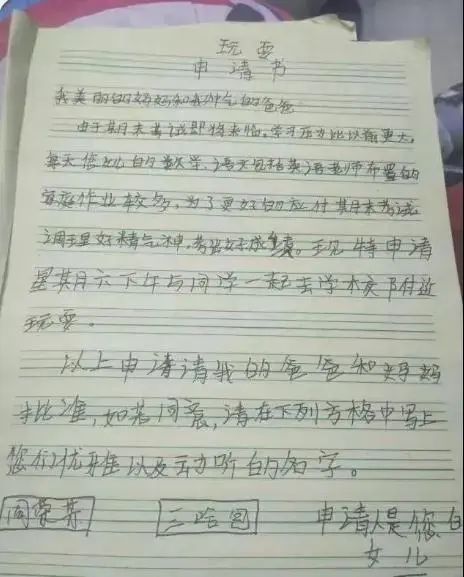 玩耍
申请书
我美丽的妈妈和我帅气的爸爸
由于期末考试即将来临,学习压力比以前更大,
每天您她的数学、语文包括英语老师布置的
家庭作业较多,为了更好的应付期末考试
调理好精气神,考出好成绩。现特申请
星期六下午与同学一起去学校附近
玩耍。
以上申请请我的爸爸和妈妈
批准,如若同意,请在下列方格中写上
您们优雅以及动听的名字。
申请人是您的
女儿